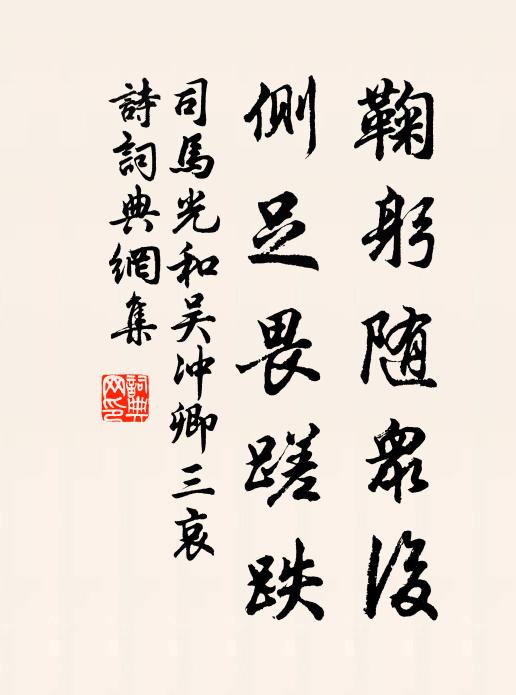 鞠躬随眾後
側足畏蹉跌
司馬光和吴沖卿三哀
詩詞典網集
詞典網印